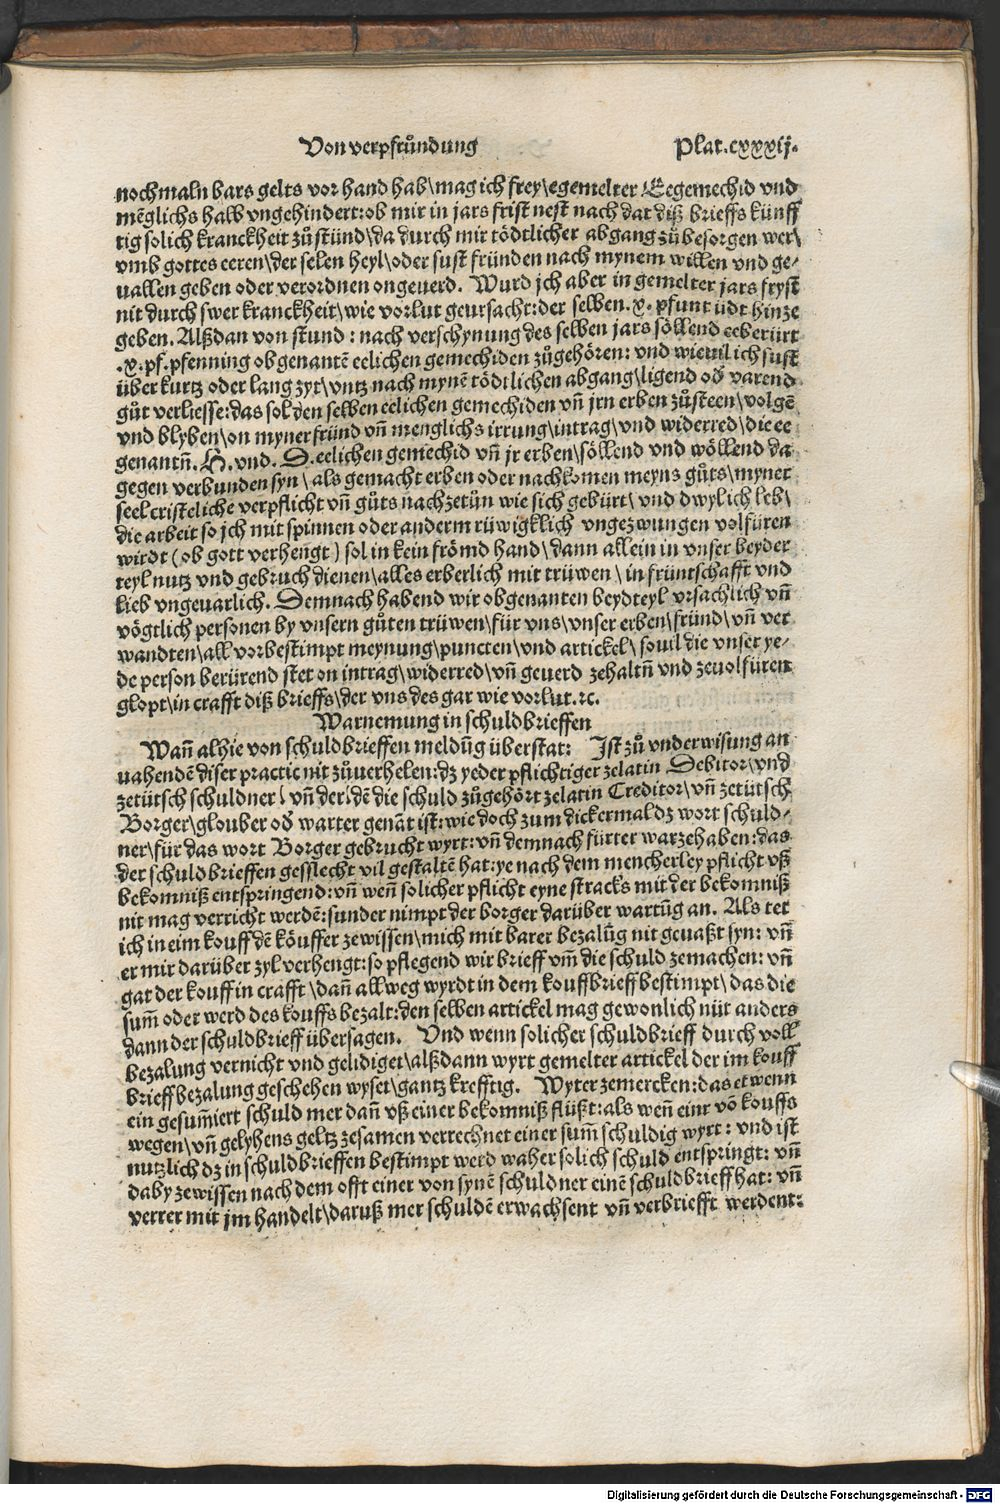 Von verpfrůndung Plat.cxxxij.
nochmaln bars gelts vor hand hab\mag ich frey\egemelter Eegemechid vnd
mẽglichs halb vngehindert:ob mir in jars frist nest nach dat diß brieffs künff
tig solich kranckheit zůstünd\da durch mir tödtlicher abgang zů besorgen wer\
vmb gottes eeren\der selen heyl\oder sust fründen nach mynem willen vnd ge⸗
uallen geben oder verordnen ongeuerd. Wurd jch aber in gemelter jars fryst
nit durch swer kranckheit\wie vorlut geursacht:der selben.x.pfunt üdt hinze
geben.Alßdan von stund:nach verschynung des selben jars söllend eeberürt
.x.pf.pfenning obgenantẽ eelichen gemechiden zůgehören:vnd wieuil ich sust
über kurtz oder lang zyt\vntz nach mynẽ tödtlichen abgang\ligend od̕ varend
gůt verliesse:das sol den selben eelichen gemechiden vñ jrn erben zůsteen\volgẽ
vnd blyben\on myner fründ vñ menglichs irrung\intrag\vnd widerred\die ee
genantñ.H.vnd.S.eelichen gemechid vñ jr erben\söllend vnd wöllend da
gegen verbunden syn\als gemacht erben oder nachkomen meyns gůts\myner
seel cristeliche verpflicht vñ gůts nachzetůn wie sich gebürt\vnd dwyl ich leb\
die arbeit so jch mit spinnen oder anderm růwigklich vngezwungen volfüren
wirdt(ob gott verhengt)sol in kein frömd hand\dann allein in vnser beyder
teyl nutz vnd gebruch dienen\alles erberlich mit trüwen\in früntschafft vnd
lieb vngeuarlich.Demnach habend wir obgenanten beydteyl vrsachlich vñ
vögtlich personen by vnsern gůten trüwen\für vns\vnser erben\fründ\vñ ver
wandten\all vorbestimpt meynung\puncten\vnd artickel\souil die vnser ye⸗
de person berürend stet on intrag\widerred\vñ geuerd zehaltñ vnd zeuolfüren
glopt\in crafft diß brieffs\der vns des gar wie vorlut.ꝛc.
Warnemung in schuldbrieffen
Wañ alhie von schuldbrieffen meldũg überstat: Ist zů vnderwisung an
uahendẽ diser practic nit zůuerhelen:dz yeder pflichtiger zelatin Debitor\vnd
zetütsch schuldner\vñ der\dẽ die schuld zůgehört zelatin Creditor\vñ zetütsch
Borger\glouber od̕ warter genãt ist:wie doch zum dickermal dz wort schuld⸗
ner\für das wort Borger gebrucht wyrt:vñ demnach fürter warzehaben:das
der schuldbrieffen gesslecht vil gestaltẽ hat:ye nach dem mencherley pflicht vß
bekomniß entspringend:vñ weñ solicher pflicht eyne stracks mit der bekomniß
nit mag verricht werdẽ:sunder nimpt der borger darüber wartũg an. Als tet
ich in eim kouff dẽ köuffer zewissen\mich mit barer bezalũg nit geuaßt syn:vñ
er mir darüber zyl verhengt:so pflegend wir brieff vm̃ die schuld zemachen:vñ
gat der kouff in crafft\dañ allweg wyrdt in dem kouffbrieff bestimpt\das die
sum̃ oder werd des kouffs bezalt:den selben artickel mag gewonlich nüt anders
dann der schuldbrieff übersagen. Vnd wenn solicher schuldbrieff durch voll
bezalung vernicht vnd gelidiget\alßdann wyrt gemelter artickel der im kouff
brieff bezalung geschehen wyset\gantz krefftig. Wyter zemercken:das etwenn
ein gesum̃iert schuld mer dañ vß einer bekomniß flüßt:als weñ einr võ kouffs
wegen\vñ gelyhens geltz zesamen verrechnet einer sum̃ schuldig wyrt:vnd ist
nutzlich dz in schuldbrieffen bestimpt werd waher solich schuld entspringt:vñ
daby zewissen nach dem offt einer von synẽ schuldner einẽ schuldbrieff hat:vñ
verrer mit jm handelt\daruß mer schuldẽ erwachsent vñ verbriefft werdent:
Digitalisierung gefördert durch die Deutsche Forschungsgemeinschaft - DFG